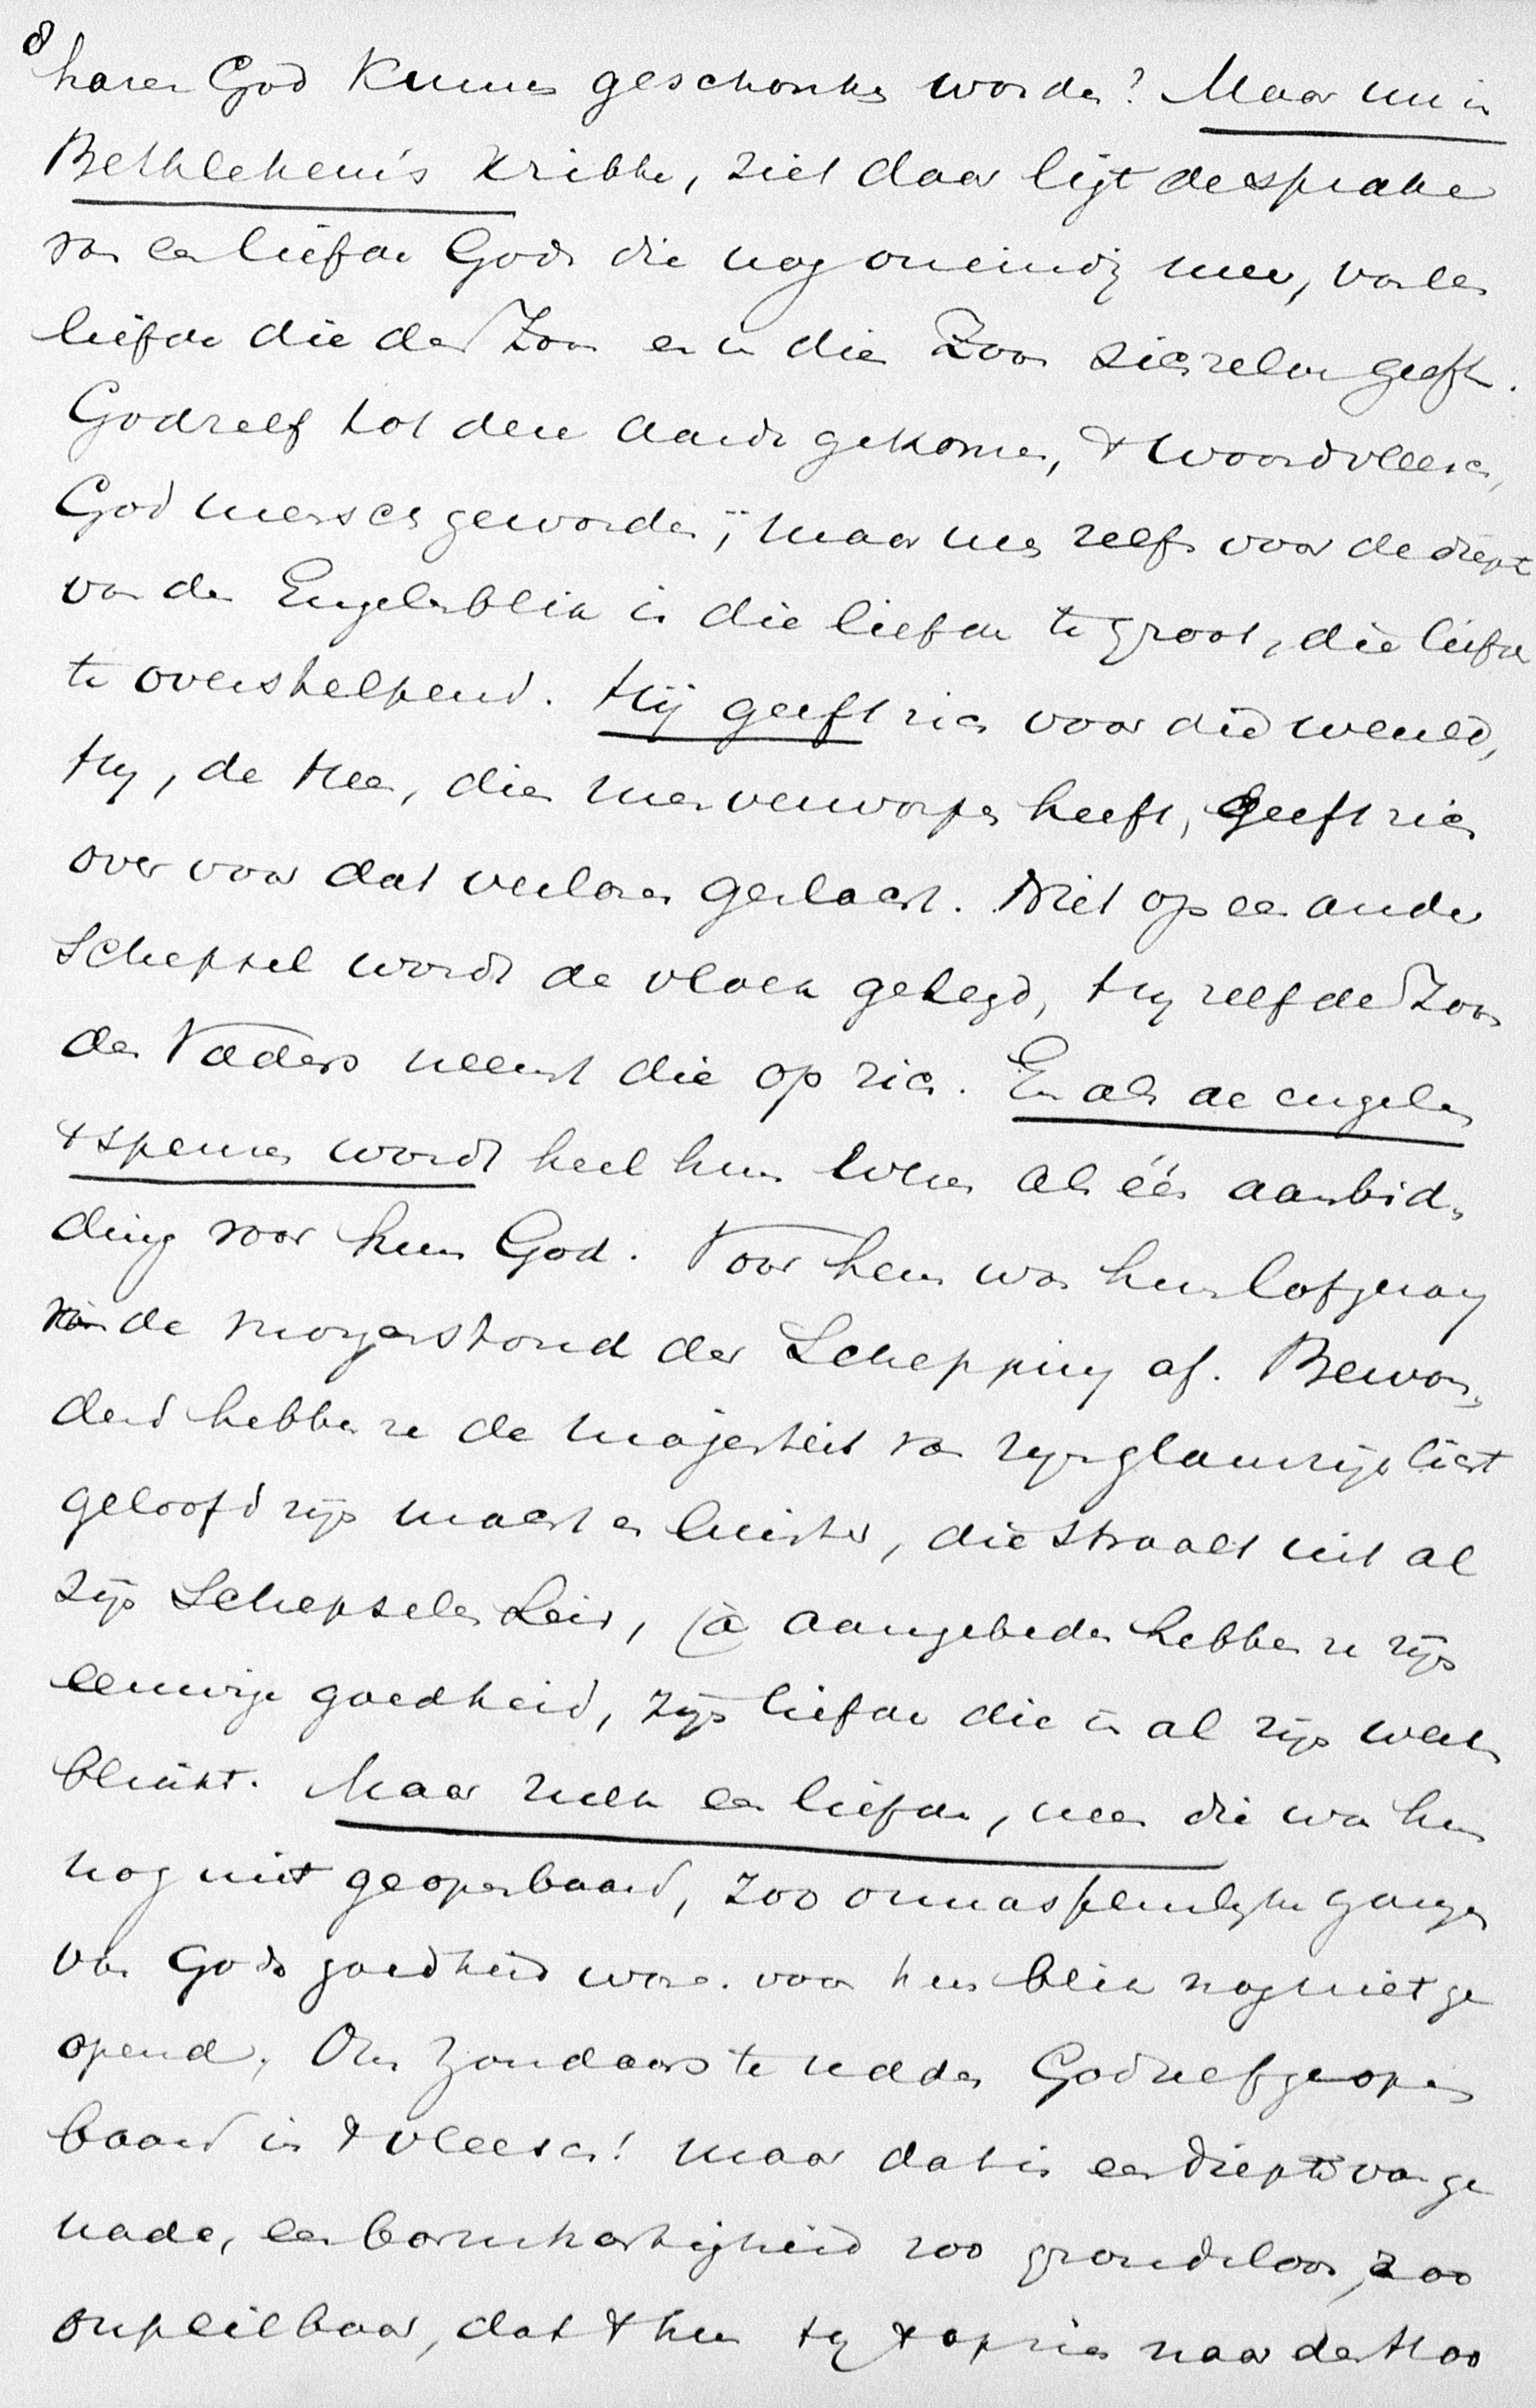 8
haren God kunnen geschonken worden? Maar nu in
Bethlehem's kribbe, ziet daar ligt de sprake
van een liefde Gods die nog oneindig meer, van een
liefde die den Zoon en in die Zoon zichzelven geeft.
God zelf tot deze aarde gekomen, 't woord vleesch,
God mensch geworden; maar nee zelfs voor de diepte
van den Engelenblik is die liefde te groot, die liefde
te overstelpend. Hij geeft zich voor die wereld,
Hij, de Heer, dien men verworpen heeft, geeft zich
over voor dat verloren geslacht. Niet op een ander
schepsel wordt de vloek gelegd, Hij zelf de Zoon
des Vaders neemt die op zich. En als de engelen
't spreken wordt heel hun wezen als één aanbid-
ding voor hun God. Voor hem was hun lofzang
van de morgenstond der Schepping af. Bewon-
derd hebben ze de majesteit van zijn glansrijk licht
geloofd zijn macht en luister, die straalt uit al
zijn Schepselen Leid, ja aangebeden hebben ze zijn
eeuwige goedheid, zijn liefde die in al zijn werken
blinkt. Maar zulk een liefde, neen die was hun
nog niet geopenbaard, zoo onnaspeurlijke gangen
van Gods goedheid waren voor hun blik nog niet ge
opend. Om zondaars te redden God zelf geopen
baard in 't vleesch! maar dat is een diepte van ge
nade, een barmhartigheid zoo grondeloos, zoo
onpeilbaar, dat 't hun bij 't opzien naar den Hoo